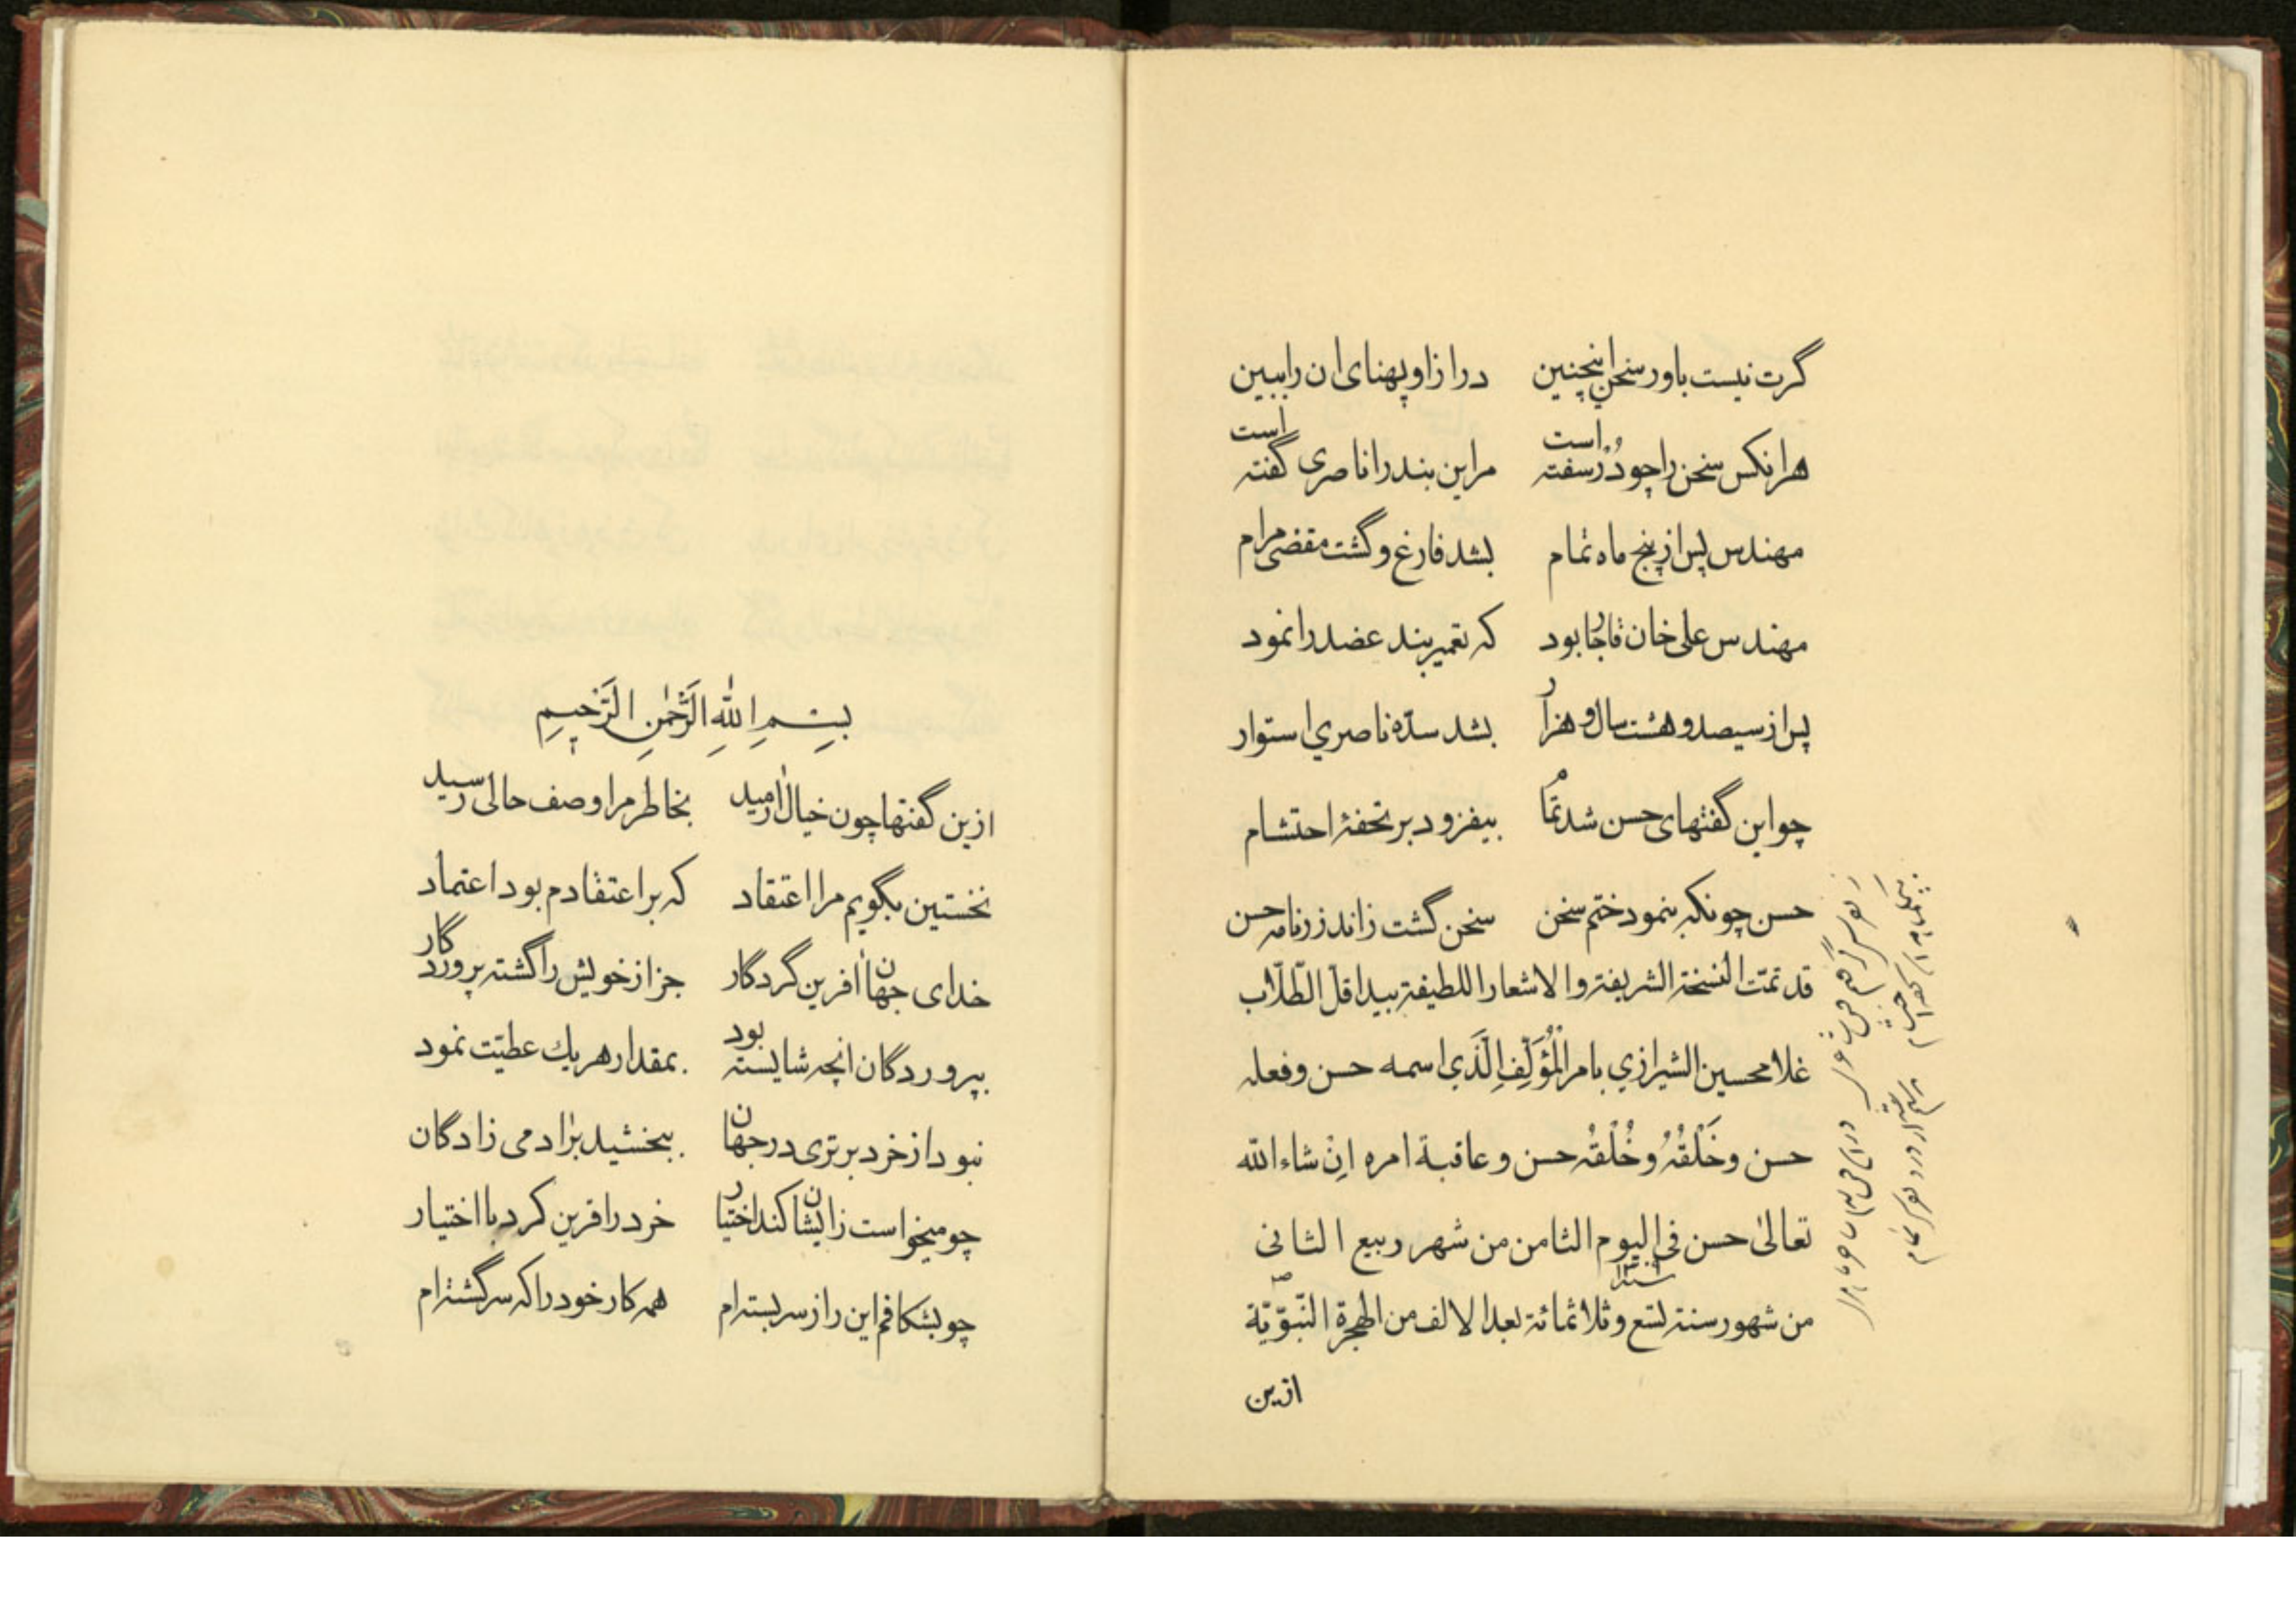 گرت نیست باور سخن اینچنین درازا و پهنای ان را ببین
هر انکس سخن را چو دُرّ سفته است مر این بند را ناصری گفته است
مهندس پس از پنج ماه تمام بشد فارغ و گشت مقضی مرام
مهندس علی خان قاجار بود که تعمیر بند عضد را نمود
پس از سیصد و هشت سال و هزار بشد سدّه ناصري استوار
چو این گفتهای حسن شد تمام بیفزود بر تحفهٔ احتشام
حسن چونکه بنمود ختم سخن سخن گشت زاندرزنامه حسن
قد تمّت النسخة الشریفة والاشعار اللطیفة بید اقلّ الطّلّاب
غلامحسین الشیرازي بامر الْمُؤَلِّفِ الَّذي اسمه حسن وفعله
حسن وخَلْقُهُ وخُلْقُه حسن وعاقبة امره اِنْ شاء الله
تعالیٰ حسن فی الیوم الثامن من شهر ربیع الثانی
من شهور سنة تسع وثلاثمائة بعد الالف من الهجرة النّبوّیّة
سنه ۱۳۰۹
ازین
بِسْمِ اللهِ الرَّحْمٰنِ الرَّحیمِ
ازین گفتها چون خیال ارمید بخاطر مرا وصف حالی رسید
نخستین بگویم مرا اعتقاد که بر اعتقادم بود اعتماد
خدای جهان افرین گردگار جز از خویش را گشته پروردگار
بپروردگان انچه شایسته بود بمقدار هر یك عطیّت نمود
نبود از خرد برتری در جهان ببخشید بر ادمی زادگان
چو میخواست زایشان کند اختیار خرد را فرین کرد با اختیار
چو بشکافم این راز سربسته‌ام همه کار خود را که سرگشته‌ام